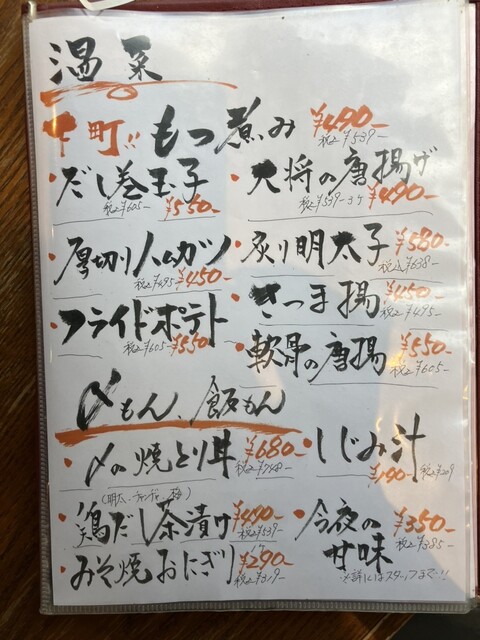 温菜
十町!! もつ煮み ¥490-
税込¥539-
・だし巻玉子 ¥550-
税込¥605-
・大将の唐揚げ ¥490-
税込¥539- 3ケ
・厚切りハムカツ ¥450-
税込¥495-
・炙り明太子 ¥580-
税込¥638-
・さつま揚 ¥450-
税込¥495-
・フライドポテト ¥550-
税込¥605-
・軟骨の唐揚 ¥550-
税込¥605-
〆もん、飯もん
・〆の焼とり丼 ¥680-
・しじみ汁 ¥190-
税込¥209
鶏だし茶漬け ¥490-
税込¥539-
・今夜の甘味 ¥350-
税込¥385-
※詳しくはスタッフまで!!
・みそ焼おにぎり ¥290-
税込¥319-